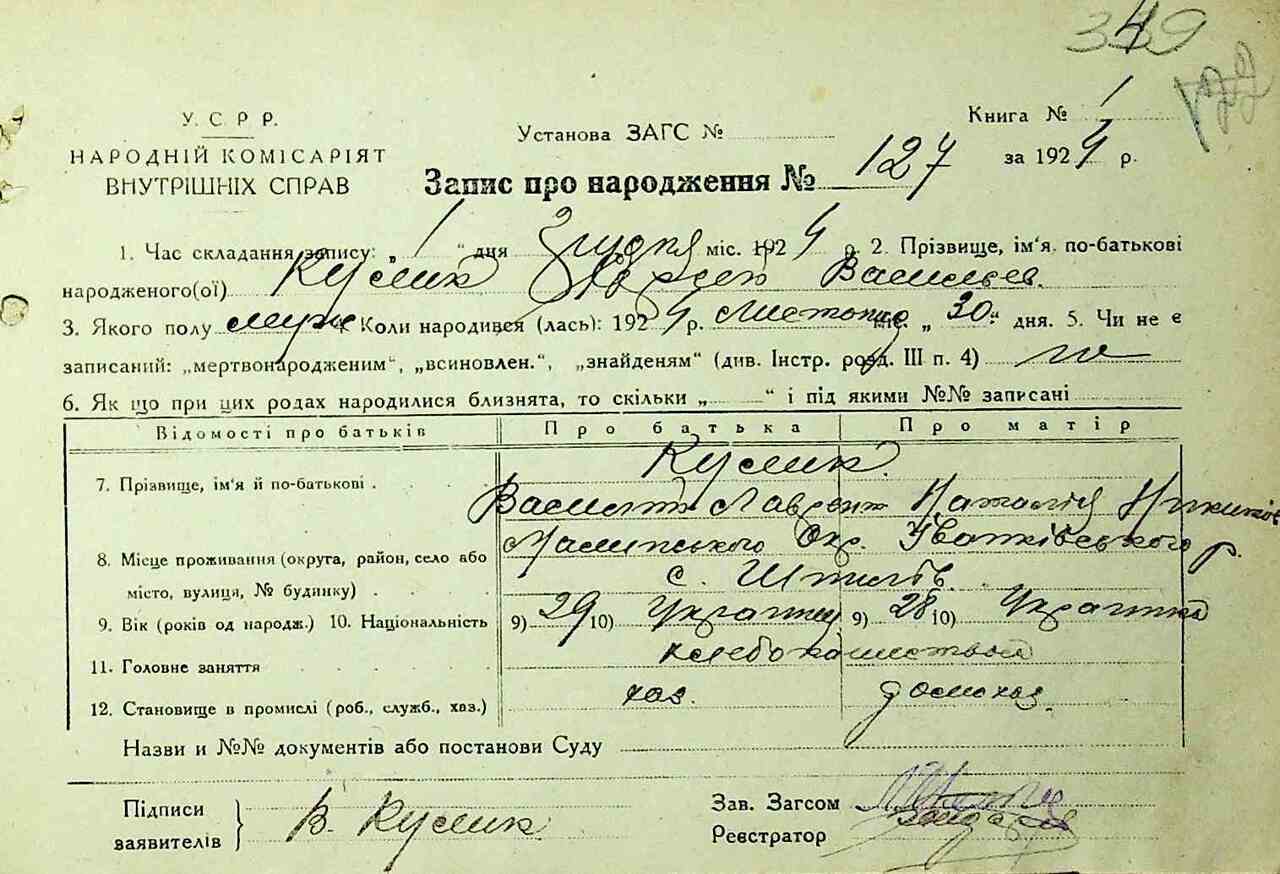 339
У. С. Р Р.
НАРОДНІЙ КОМІСАРІЯТ
ВНУТРІШНІХ СПРАВ
Установа ЗАГС №
Книга № 1
за 1924 р.
Запис про народження № 127
1. Час складання запису: „ 1 “ дня Грудня міс. 1924 р. 2. Прізвище, ім'я по-батькові
народженого(ої) Кумик Васильев.
3. Якого полу муж 4. Коли народився (лась): 1924 р. Листопад міс. „ 30 “ дня. 5. Чи не є
записаний: „мертвонародженим“, „всиновлен.“, „знайденям“ (див. Інстр. розд. III п. 4)
6. Як що при цих родах народилися близнята, то скільки „ “ і під якими №№ записані
Відомості про батьків Про батька Про матір
7. Прізвище, ім'я й по-батькові . Кумик
Василь Лаврент Наталія
8. Місце проживання (округа, район, село або
місто, вулиця, № будинку) . Окр. р.
с.
9. Вік (років од народж.) 10. Національність 9) 29 10) Українец 9) 28 10) Українка
11. Головне заняття хлебопашеством
12. Становище в промислі (роб., служб., хаз.) хаз. домохаз.
Назви и №№ документів або постанови Суду
Підписи
заявителів } В. Кумик
Зав. Загсом
Реєстратор